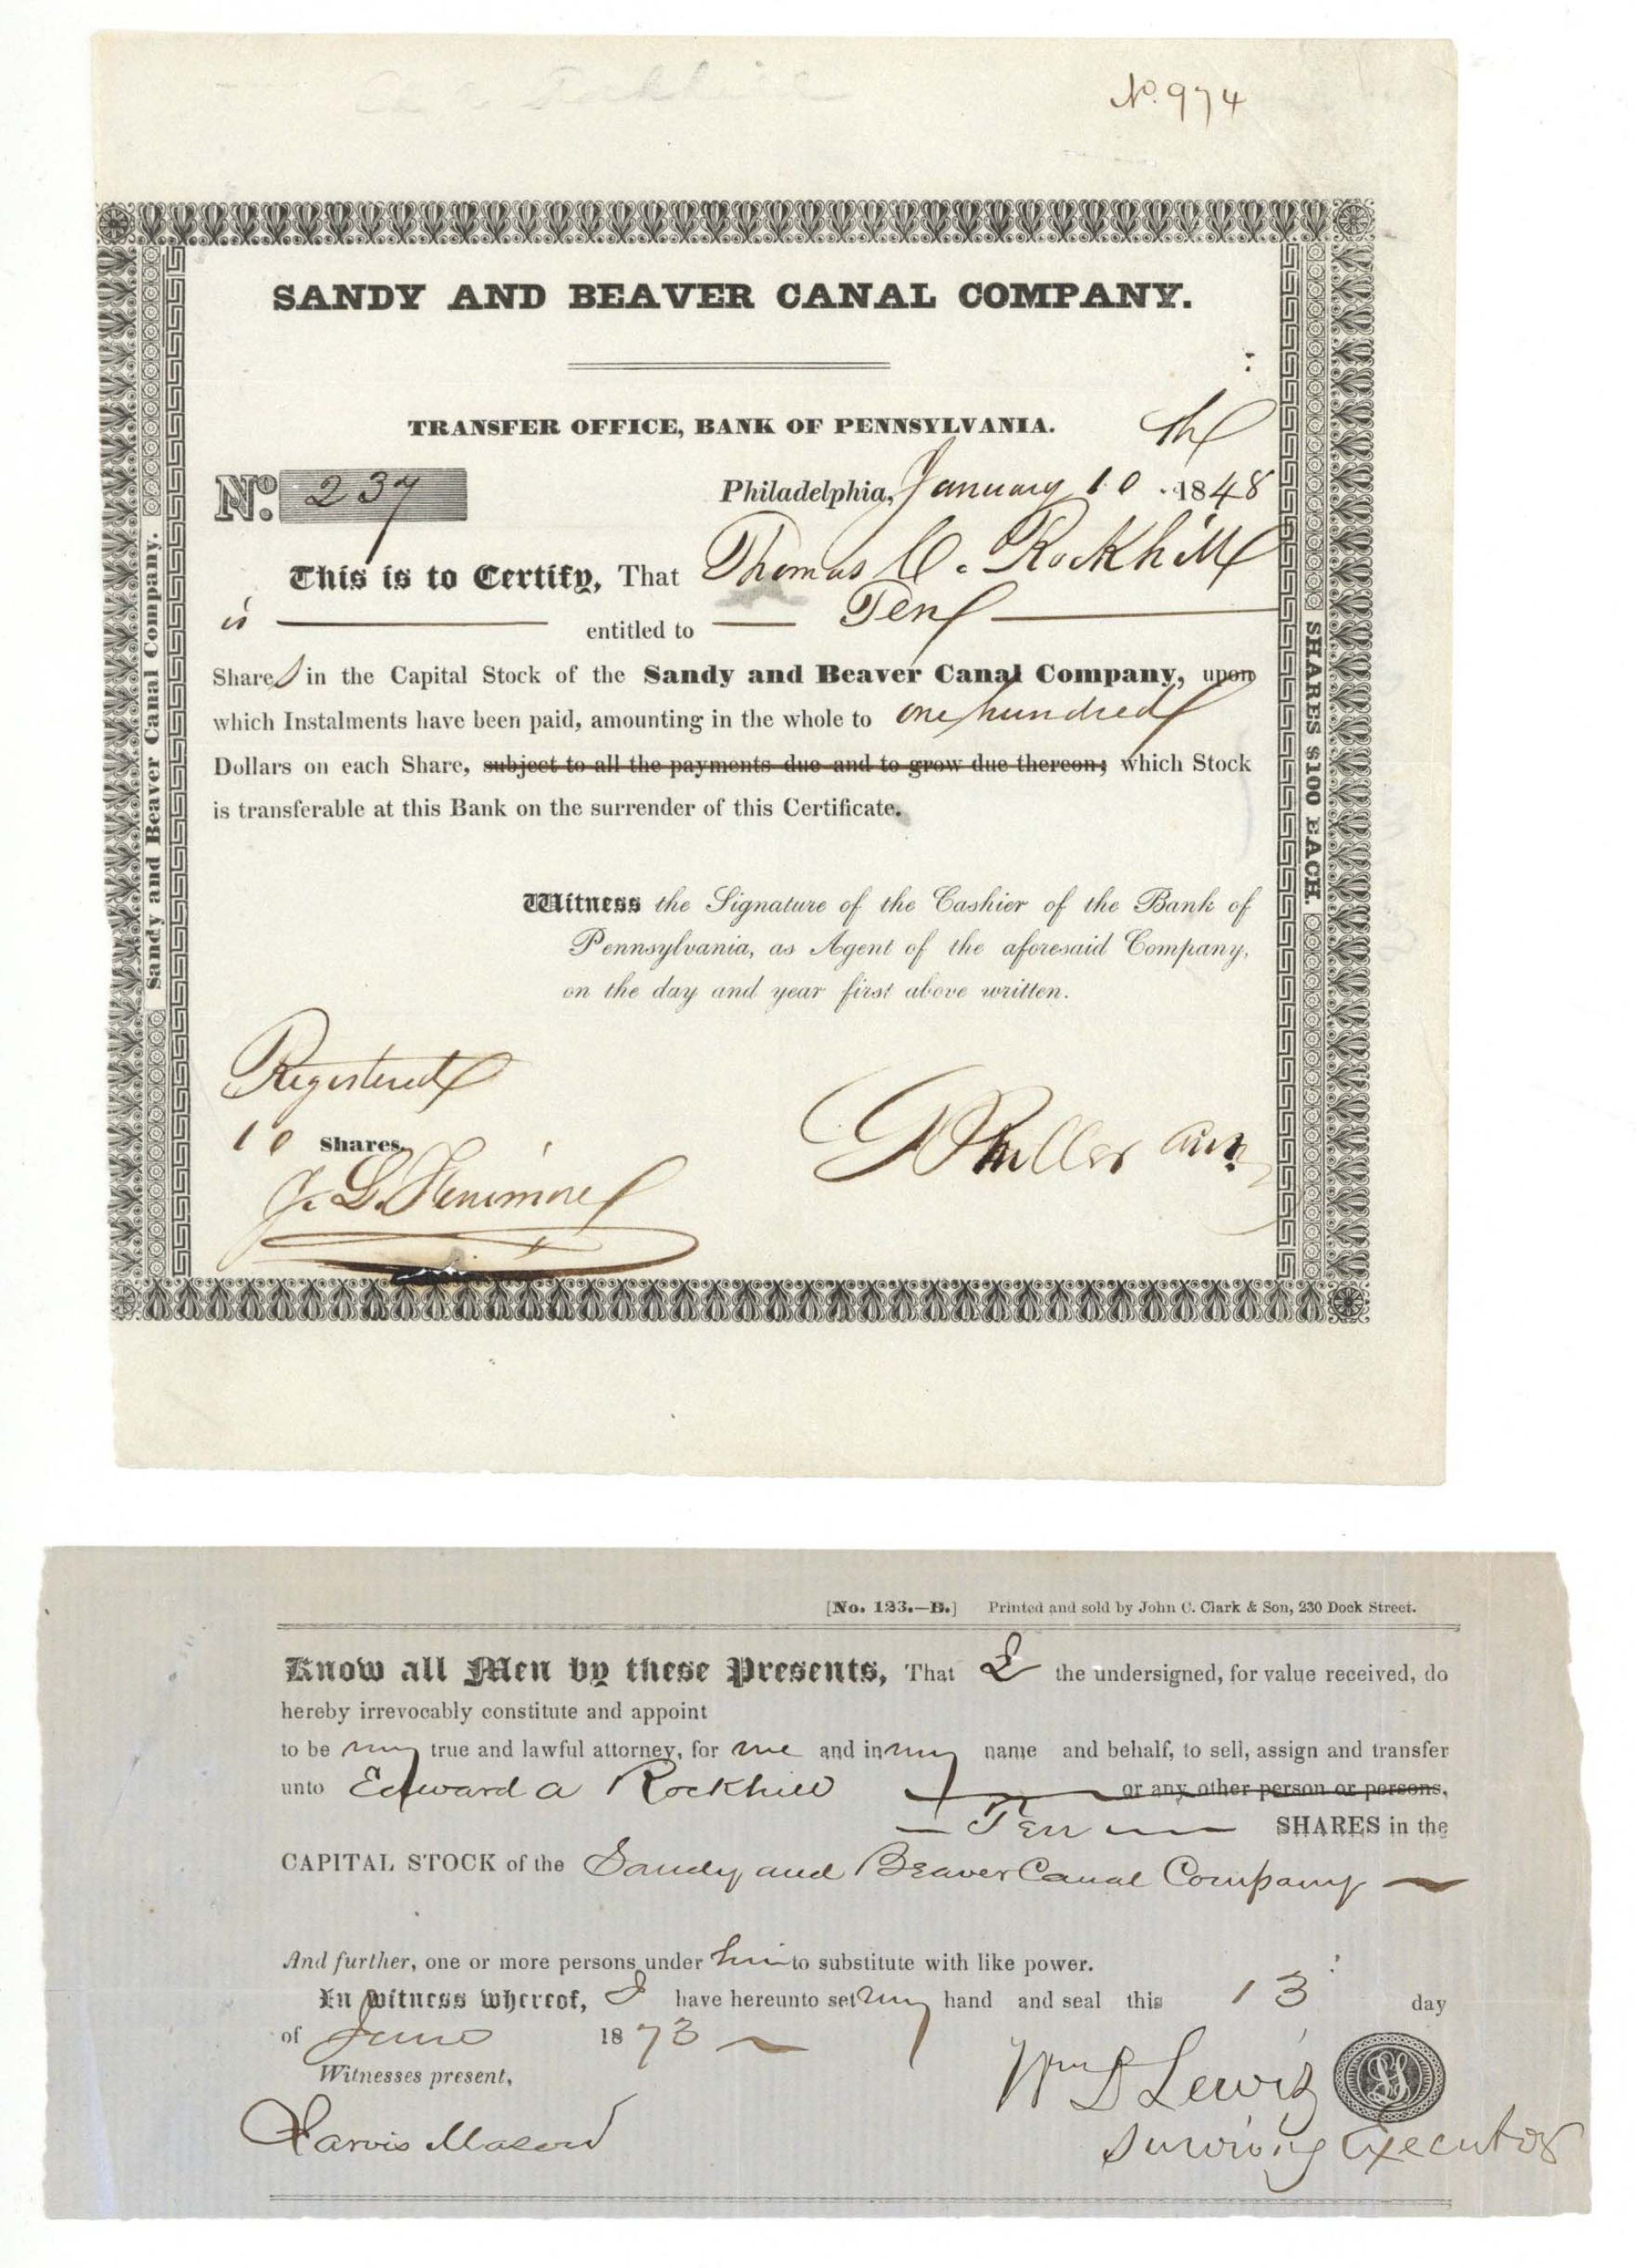 Nº 974
SANDY AND BEAVER CANAL COMPANY.
TRANSFER OFFICE, BANK OF PENNSYLVANIA.
th
Nº. 237
Philadelphia, January 10 1848
This is to Certify, That Thomas C. Rockhill
is entitled to Ten
Shares in the Capital Stock of the Sandy and Beaver Canal Company, upon
which Instalments have been paid, amounting in the whole to one hundred
Dollars on each Share, subject to all the payments due and to grow due thereon; which Stock
is transferable at this Bank on the surrender of this Certificate.
Witness the Signature of the Cashier of the Bank of
Pennsylvania, as Agent of the aforesaid Company,
on the day and year first above written.
Registered
10 Shares.
J. L. Fenimore
Sandy and Beaver Canal Company.
SHARES $100 EACH.
[No. 123.—B.] Printed and sold by John C. Clark & Son, 230 Dock Street.
Know all Men by these Presents, That I the undersigned, for value received, do
hereby irrevocably constitute and appoint
to be my true and lawful attorney, for me and in my name and behalf, to sell, assign and transfer
unto Edward A Rockhill or any other person or persons,
Ten SHARES in the
CAPITAL STOCK of the Sandy and Beaver Canal Company
And further, one or more persons under him to substitute with like power.
In witness whereof, I have hereunto set my hand and seal this 13 day
of June 1873
Witnesses present,
Wm D Lewis
LS
Jarvis Mason
Surviving Executor